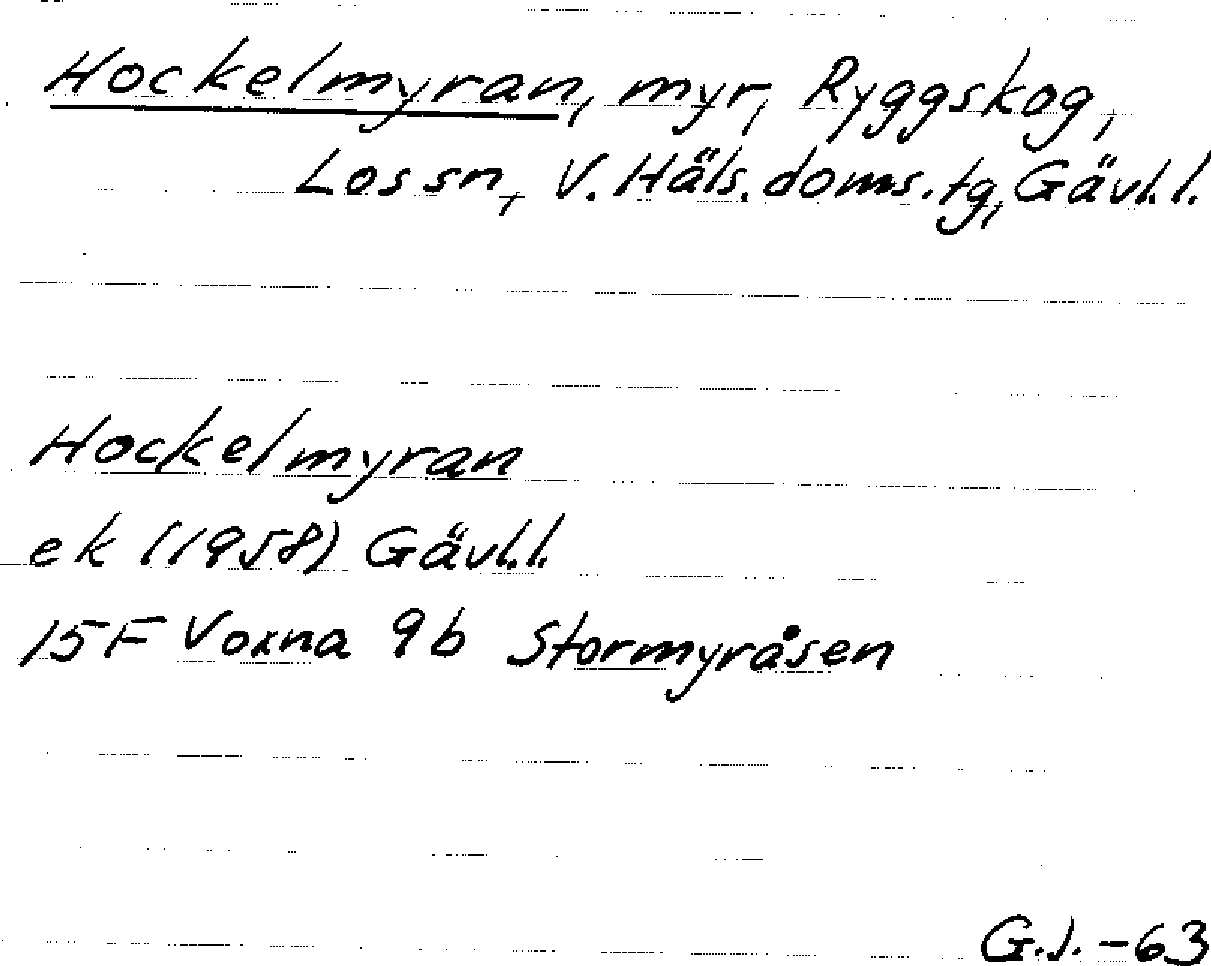 Hockelmyran, myr, Ryggskog,
Los sn, V. Häls. doms. tg, Gävl.l.
Hockelmyran
ek (1958) Gävl.l.
15F Voxna 9b Stormyråsen
G.J. -63